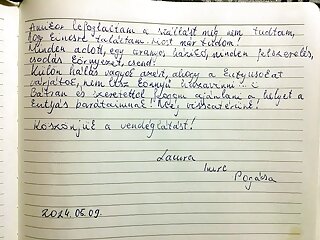 Amikor lefoglaltam a szállást még nem tudtam,
hogy kincset találtam. Most már tudom!
Minden adott, egy iramos házikó, minden felszerelés,
csodás környezet, csend!
Külön hálás vagyok azért, ahogy a kutyusokat
várjátok, nem lesz könnyű itthagyni...
Bátran és szeretettel fogom ajánlani a helyet a
kutyás barátaimnak! Még visszatérünk!
Köszönjük a vendéglátást!
Laura
Imre
2024.05.09.